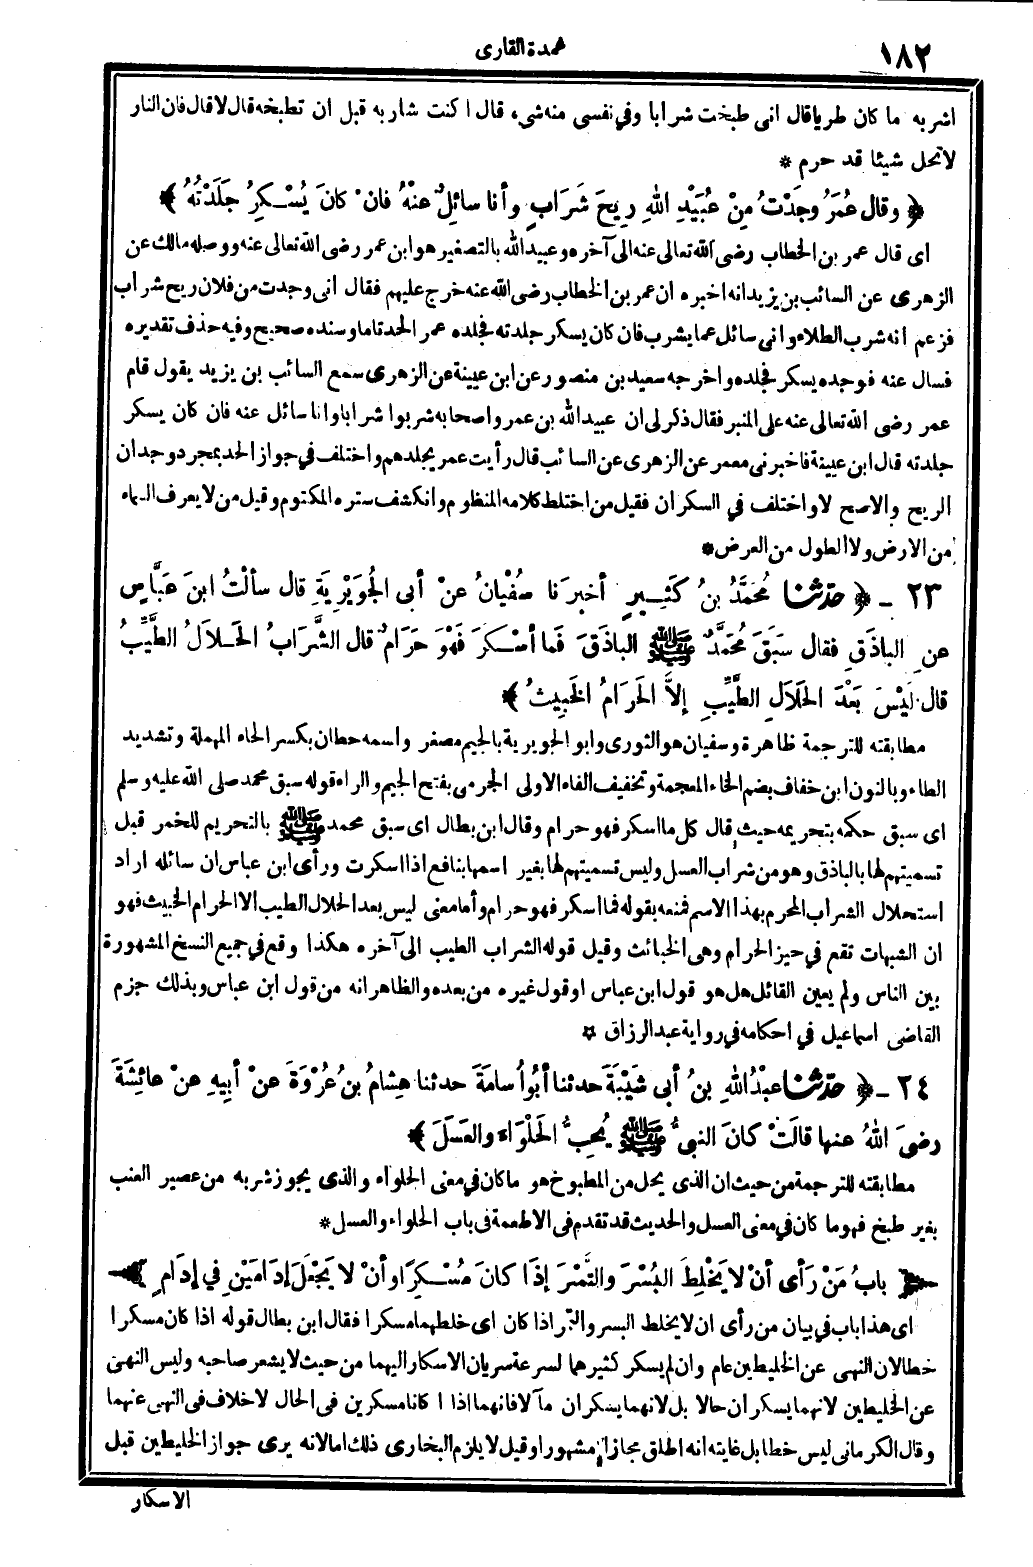 ١٨٢
عمدة القارى
اشربه ما كان طريا قال انى طبخت شرابا وفي نفسى منه شىء قال اكنت شاربه قبل ان تطبخه قال لا قال فان النار
لا تحل شيئا قد حرم *
﴿ وقال عُمَرُ وجَدْتُ مِنْ عُبَيْدِ اللهِ رِيحَ شَرَابٍ وأنا سائِلٌ عنْهُ فانْ كانَ يُسْكِرُ جَلَدْتُهُ ﴾
اى قال عمر بن الخطاب رضى الله تعالى عنه الى آخره وعبيد الله بالتصغير هو ابن عمر رضى الله تعالى عنه ووصله مالك عن
الزهرى عن السائب بن يزيد انه اخبره ان عمر بن الخطاب رضى الله عنه خرج عليهم فقال انى وجدت من فلان ريح شراب
فزعم انه شرب الطلاء وانى سائل عما يشرب فان كان يسكر جلدته فجلده عمر الحد تاما وسنده صحيح وفيه حذف تقديره
فسال عنه فوجده يسكر فجلده واخرجه سعيد بن منصور عن ابن عيينة عن الزهرى سمع السائب بن يزيد يقول قام
عمر رضى الله تعالى عنه على المنبر فقال ذكر لى ان عبيد الله بن عمر واصحابه شربوا شرابا وانا سائل عنه فان كان يسكر
جلدته قال ابن عيينة فاخبرنى معمر عن الزهرى عن السائب قال رأيت عمر يجلدهم واختلف في جواز الحد بمجرد وجدان
الريح والاصح لا واختلف في السكران فقيل من اختلط كلامه المنظوم وانكشف ستره المكتوم وقيل من لا يعرف السماء
من الارض ولا الطول من العرض *
٢٣ - ﴿ حدّثنا مُحَمَّدُ بنُ كَثِيرٍ أخبرَنا سُفْيانُ عنْ أبى الجُوَيْرِيَةِ قال سألْتُ ابنَ عَبَّاسٍ
عنِ الباذَقِ فقال سَبَقَ مُحَمَّدٌ ﷺ الباذَقَ فَما أسْكَرَ فَهْوَ حَرَامٌ قال الشَّرَابُ الحَلاَلُ الطَّيِّبُ
قال لَيْسَ بَعْدَ الحَلاَلِ الطَّيِّبِ إلاَّ الحَرَامُ الخَبِيثُ ﴾
مطابقته للترجمة ظاهرة وسفيان هو الثورى وابو الجويرية بالجيم مصغر واسمه حطان بكسر الحاء المهملة وتشديد
الطاء وبالنون ابن خفاف بضم الخاء المعجمة وتخفيف الفاء الاولى الجرمى بفتح الجيم والراء قوله سبق محمد صلى الله عليه وسلم
اى سبق حكمه بتحريمه حيث قال كل ما اسكر فهو حرام وقال ابن بطال اى سبق محمد ﷺ بالتحريم للخمر قبل
تسميتهم لها بالباذق وهو من شراب العسل وليس تسميتهم لها بغير اسمها بنافع اذا اسكرت ورأى ابن عباس ان سائله اراد
استحلال الشراب المحرم بهذا الاسم فمنعه بقوله فما اسكر فهو حرام وأما معنى ليس بعد الحلال الطيب الا الحرام الخبيث فهو
ان الشبهات تقع في حيز الحرام وهى الخبائث وقيل قوله الشراب الطيب الى آخره هكذا وقع في جميع النسخ المشهورة
بين الناس ولم يعين القائل هل هو قول ابن عباس او قول غيره من بعده والظاهر انه من قول ابن عباس وبذلك جزم
القاضى اسماعيل في احكامه في رواية عبد الرزاق *
٢٤ - ﴿ حدّثنا عبْدُ اللهِ بنُ أبى شَيْبَةَ حدثنا أبُو أُسامَةَ حدثنا هِشامُ بنُ عُرْوَةَ عنْ أبِيهِ عنْ عائِشَةَ
رضىَ اللهُ عنها قالَتْ كانَ النبىُّ ﷺ يُحِبُّ الحَلْوَاءَ والعَسَلَ ﴾
مطابقته للترجمة من حيث ان الذى يحل من المطبوخ هو ما كان في معنى الحلواء والذى يجوز شربه من عصير العنب
بغير طبخ فهو ما كان في معنى العسل والحديث قد تقدم فى الاطعمة فى باب الحلواء والعسل *
﴿ بابُ مَنْ رَأى أنْ لا يَخْلِطَ البُسْرَ والتَّمْرَ إذَا كانَ مُسْكِرًا وأنْ لا يَجْعَلَ إدَامَيْنِ في إدَامٍ ﴾
اى هذا باب في بيان من رأى ان لا يخلط البسر والتمر اذا كان اى خلطهما مسكرا فقال ابن بطال قوله اذا كان مسكرا
خطا لان النهى عن الخليطين عام وان لم يسكر كثيرهما لسرعة سريان الاسكار اليهما من حيث لا يشعر صاحبه وليس النهى
عن الخليطين لانهما يسكران حالا بل لانهما يسكران مآلا فانهما اذا كانا مسكرين فى الحال لا خلاف فى النهى عنهما
وقال الكرمانى ليس خطا بل غايته انه اطلق مجازا مشهورا وقيل لا يلزم البخارى ذلك اما لانه يرى جواز الخليطين قبل
الاسكار